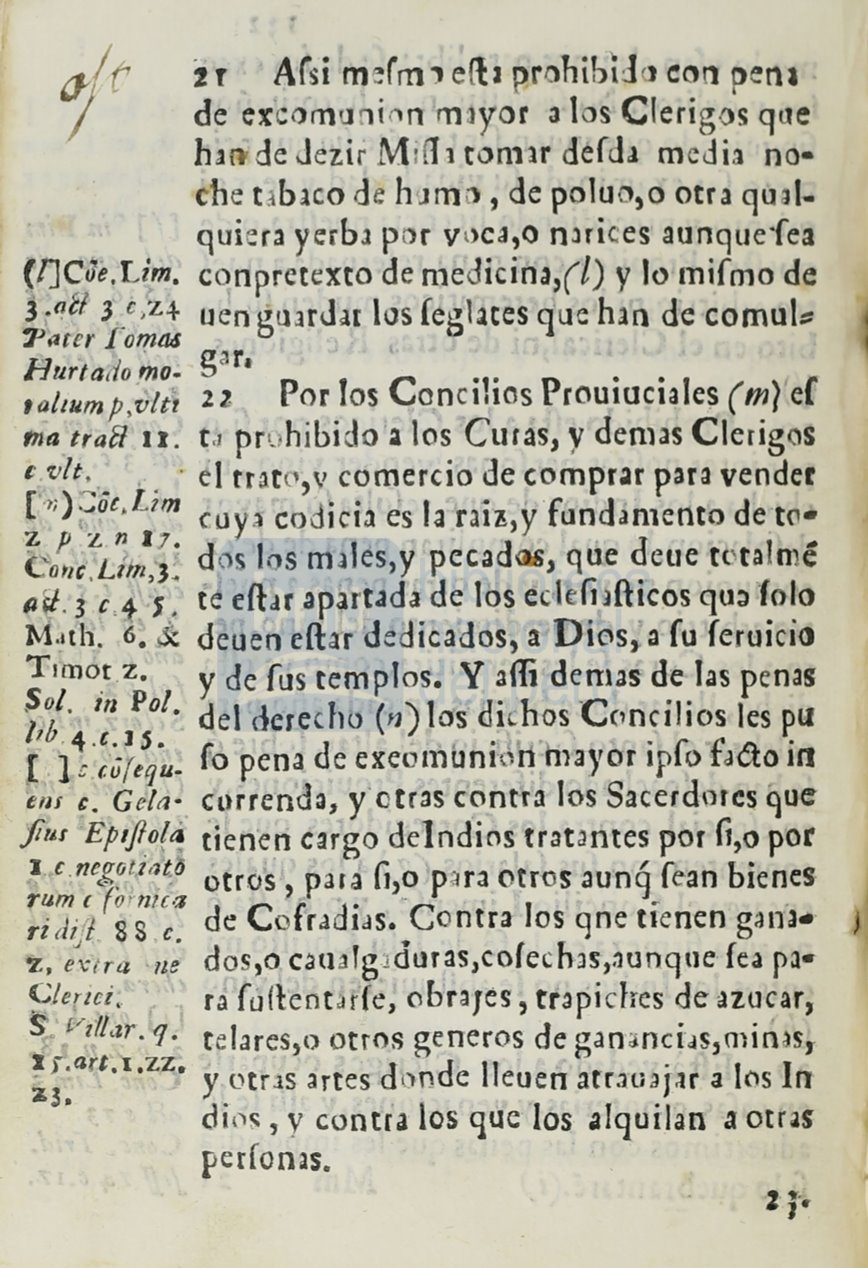 21 Aſsi meſmo eſta prohibido con pena
de excomunion mayor a los Clerigos que
han de dezir Miſſa tomar deſda media no-
che tabaco de humo, de poluo, o otra qual-
quiera yerba por voca, o narices aunque ſea
conpretexto de medicina, (l) y lo miſmo de
uen guardar los ſeglares que han de comul-
gar.
22 Por los Concilios Prouiuciales (m) eſ
ta prohibido a los Curas, y demas Clerigos
el trato, y comercio de comprar para vender
cuya codicia es la raiz, y fundamento de to-
dos los males, y pecados, que deue totalmẽ
te eſtar apartada de los ecleſiaſticos qua ſolo
deuen eſtar dedicados, a Dios, a ſu ſeruicio
y de ſus templos. Y aſſi demas de las penas
del derecho (n) los dichos Concilios les pu
ſo pena de exeomunion mayor ipſo facto in
currenda, y otras contra los Sacerdotes que
tienen cargo deIndios tratantes por ſi, o por
otros, para ſi, o para otros aunq́ ſean bienes
de Cofradias. Contra los qne tienen gana-
dos, o caualgaduras, coſechas, aunque ſea pa-
ra ſuſtentarſe, obrajes, trapiches de azucar,
telares, o otros generos de ganancias, minas,
y otras artes donde lleuen atrauajar a los In
dios, y contra los que los alquilan a otras
perſonas.
23.
(l] Cõe. Lim.
3. act 3 c, 24
Pater Tomas
Hurtado mo-
talium p, vlti
ma tract 11.
c vlt.
Cõc. Lim
2 p 2 n 17.
Conc. Lim, 3.
act. 3 c 4 5.
Math. 6. &
Timot 2.
Sol. in Pol.
lib 4. c. 15.
[ ] cõſequ-
ens c. Gela-
ſius Epiſtola
1 c negotiatõ
rum c fornica
ri diſt 88 c.
2, extra ne
Clerici.
S Villar. q.
15. art. 1. 22.
23.